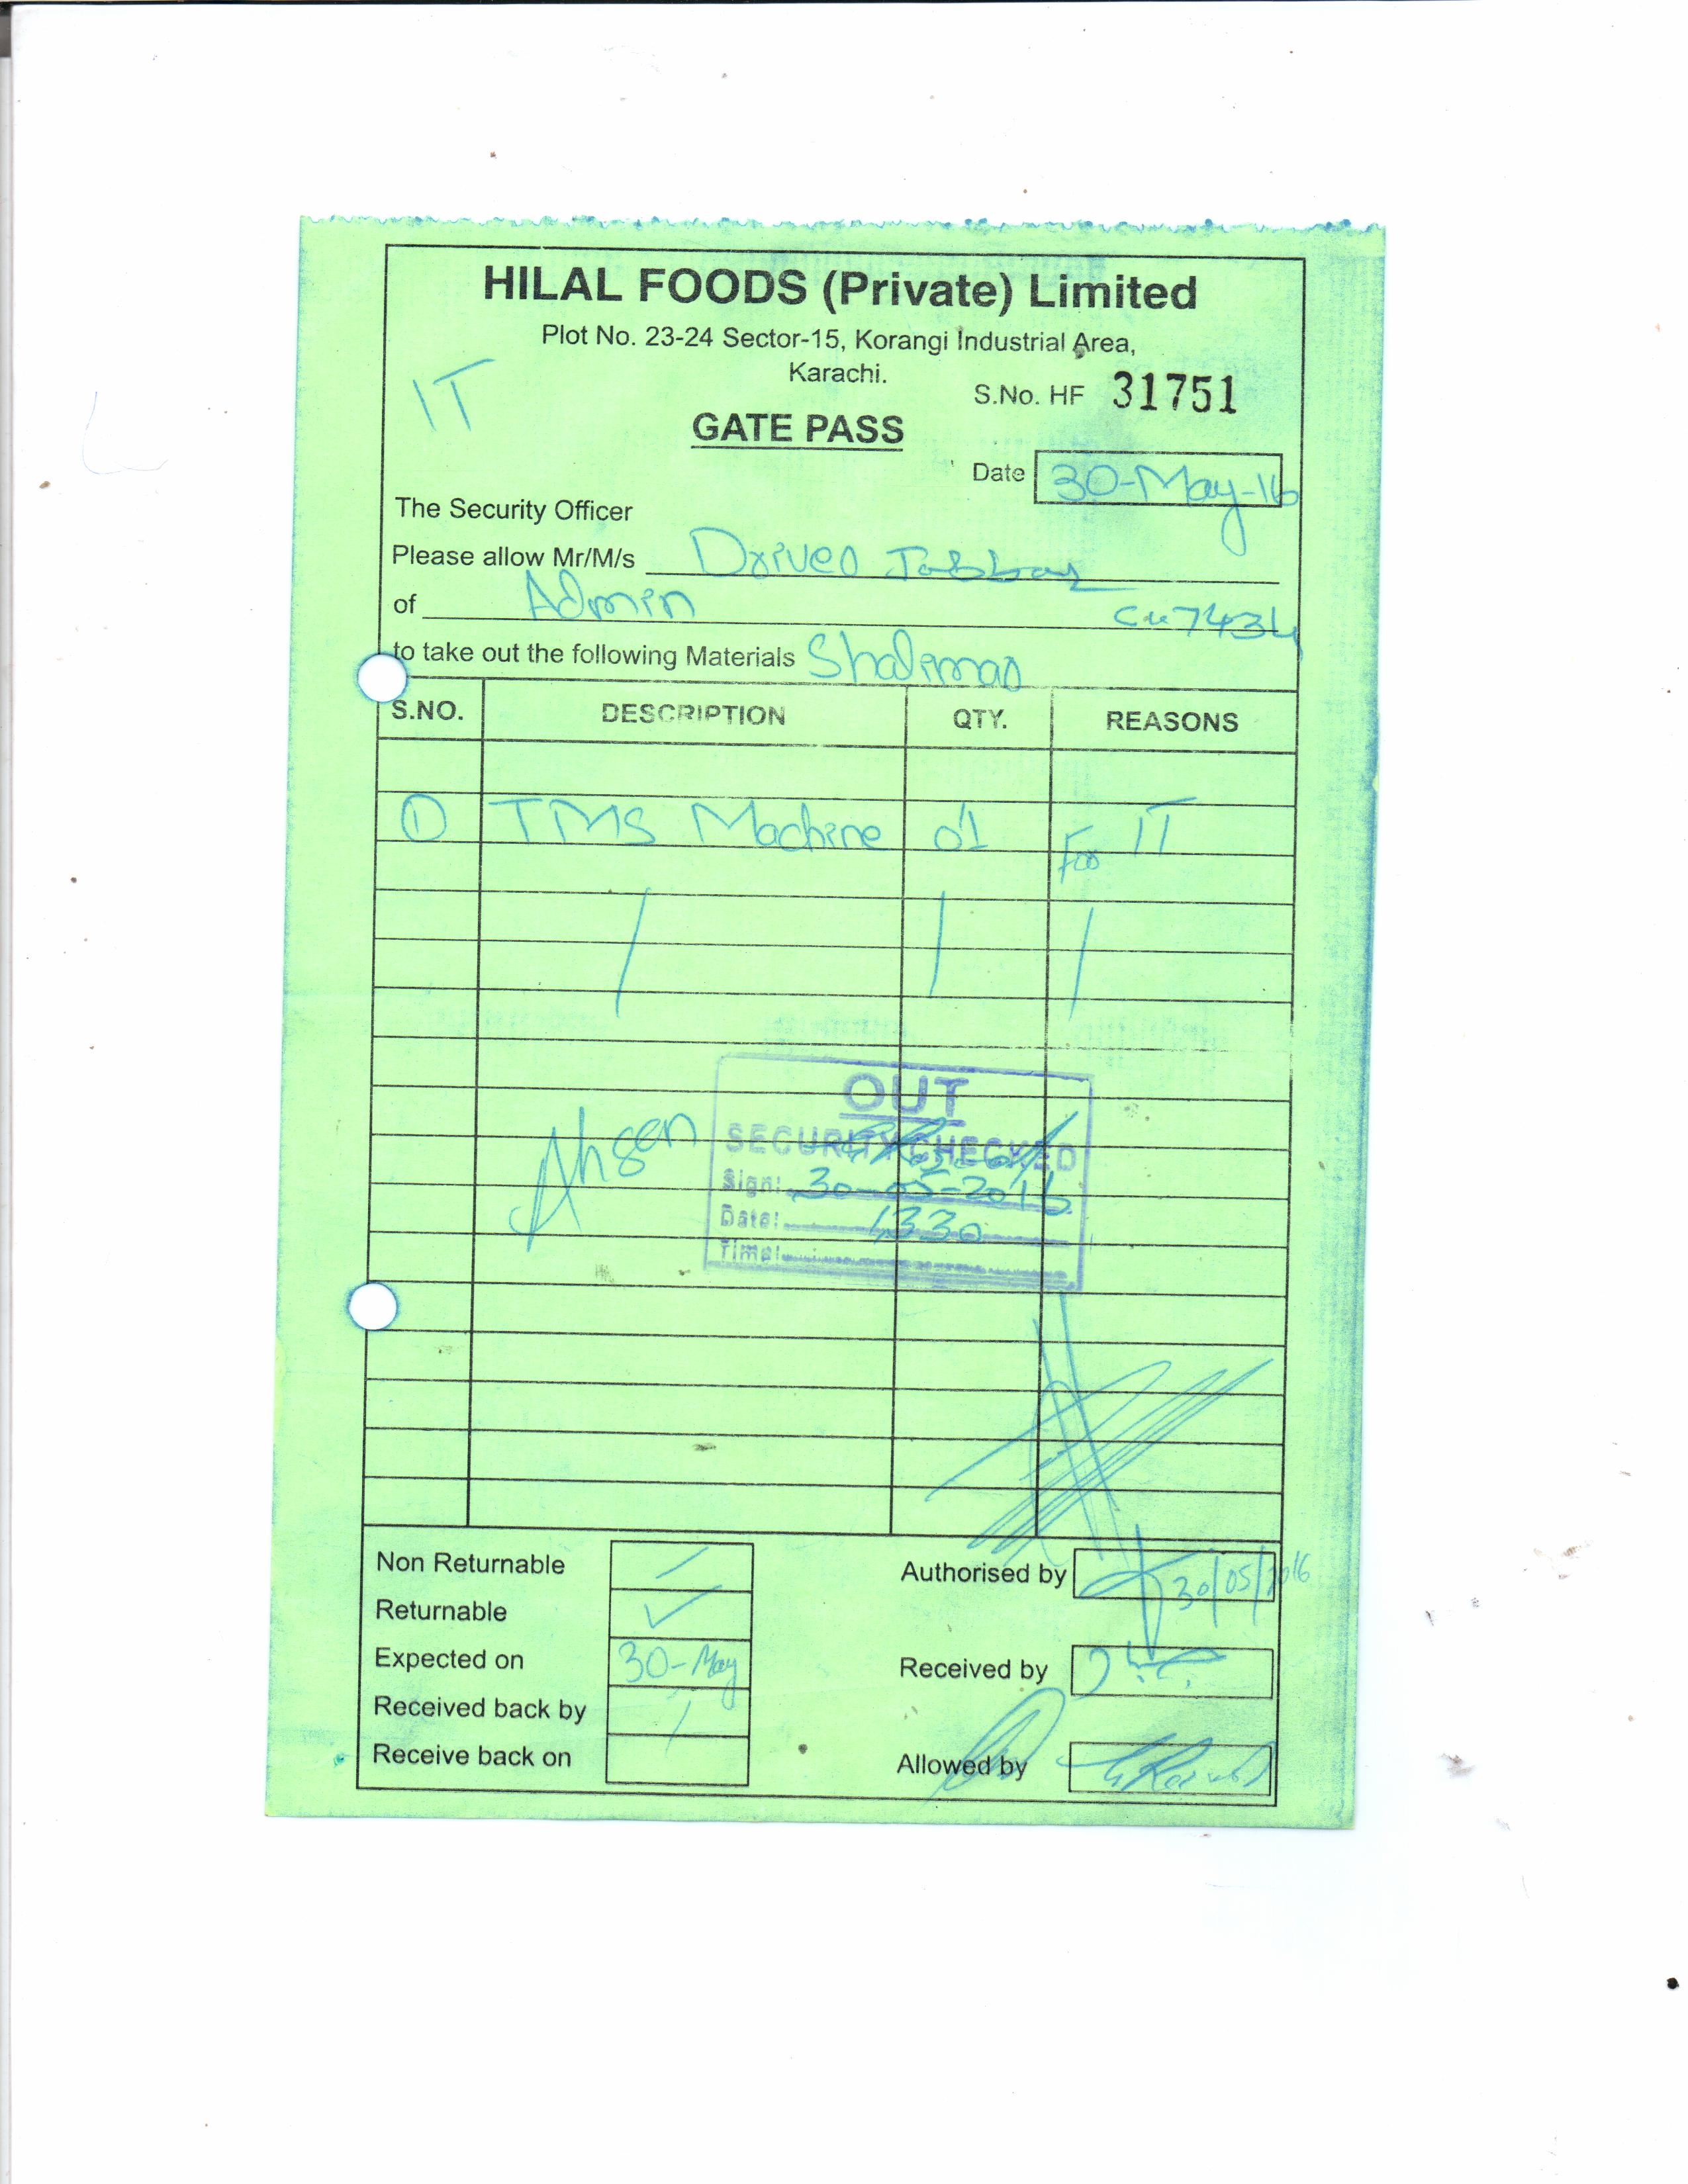 HILAL FOODS (Private) Limited
Plot No. 23-24 Sector-15, Korangi Industrial Area,
Karachi.
IT
S.No. HF 31751
GATE PASS
Date 30-May-16
The Security Officer
Please allow Mr/M/s Driver Jabbar
of Admin
to take out the following Materials
S.NO. DESCRIPTION QTY. REASONS
1 TMS Machine 01 For IT
Ahsan
OUT
SECURITY CHECKED
Sign: 30-05-2016
Date: 1330
Time:
Non Returnable
Returnable ✓
Expected on 30-May
Received back by
Receive back on
Authorised by 30/05/2016
Received by
Allowed by